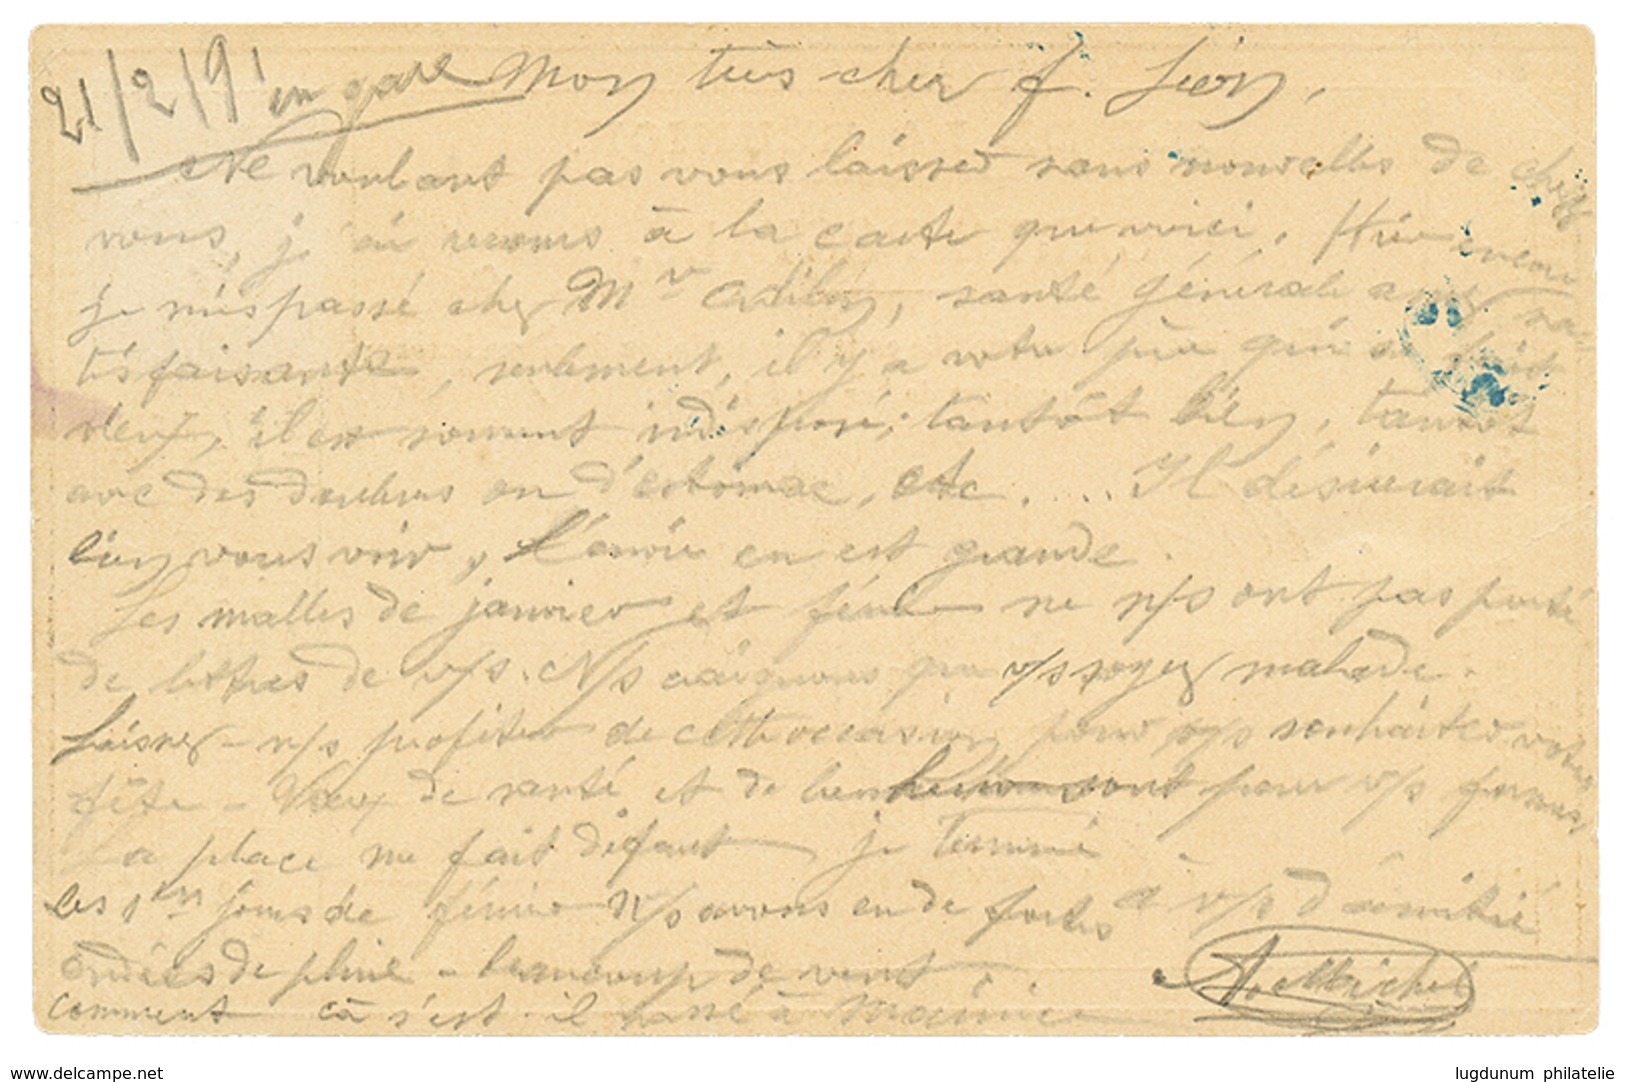 21/2/91 en gare Mon très cher f. Léon,
Ne voulant pas vous laisser sans nouvelles de chez
vous, j'ai recours à la carte que voici. Hier
je suis passé chez Mr santé générale a sa-
tisfaisante, seulement, il y a votre père qui se fait
vieux, il est souvent indisposé; tantôt bien, tantôt
avec des douleurs ou d'estomac, etc. ... Il désirerait
bien vous voir, l'envie en est grande.
Les malles de janvier et février ne n/s ont pas porté
de lettres de v/s. N/s craignons que v/s soyez malade.
Laissez-n/s profiter de cette occasion pour v/s souhaiter votre
fête - Vœux de santé et de bonheur sont pour v/s formés,
La place me fait défaut je termine.
les 1ers jours de février N/s avons eu de fortes à v/s d'amitié
ondées de pluie - beaucoup de vent..
comment cà s'est-il passé à Maurice
Michel
delcampe.net
lugdunum philatelie